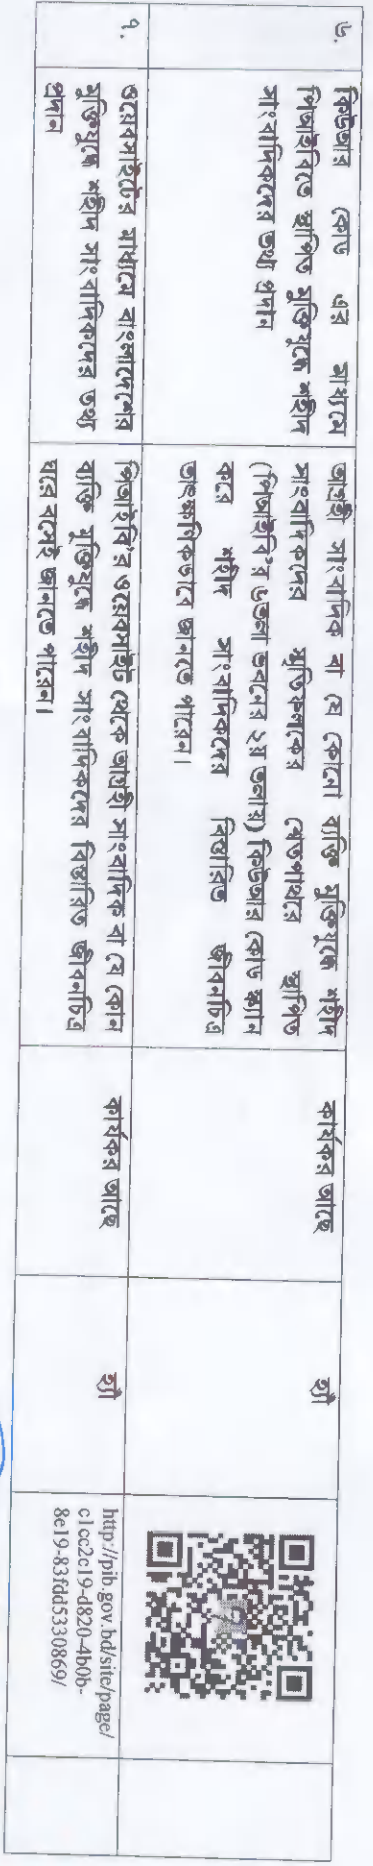 ৬.
কিউআর কোড এর মাধ্যমে
পিআইবিতে স্থাপিত মুক্তিযুদ্ধে শহীদ
সাংবাদিকদের তথ্য প্রদান
আগ্রহী সাংবাদিক বা যে কোনো ব্যক্তি মুক্তিযুদ্ধে শহীদ
সাংবাদিকদের স্মৃতিফলকের শ্বেতপাথরে স্থাপিত
(পিআইবি'র ৬তলা ভবনের ২য় তলায়) কিউআর কোড স্ক্যান
করে শহীদ সাংবাদিকদের বিস্তারিত জীবনচিত্র
তাৎক্ষণিকভাবে জানতে পারেন।
কার্যকর আছে
হ্যাঁ
৭.
ওয়েবসাইটের মাধ্যমে বাংলাদেশের
মুক্তিযুদ্ধে শহীদ সাংবাদিকদের তথ্য
প্রদান
পিআইবি'র ওয়েবসাইট থেকে আগ্রহী সাংবাদিক বা যে কোন
ব্যক্তি মুক্তিযুদ্ধে শহীদ সাংবাদিকদের বিস্তারিত জীবনচিত্র
ঘরে বসেই জানতে পারেন।
কার্যকর আছে
হ্যাঁ
http://pib.gov.bd/site/page/
c1cc2c19-d820-4b0b-
8e19-83fdd5330869/